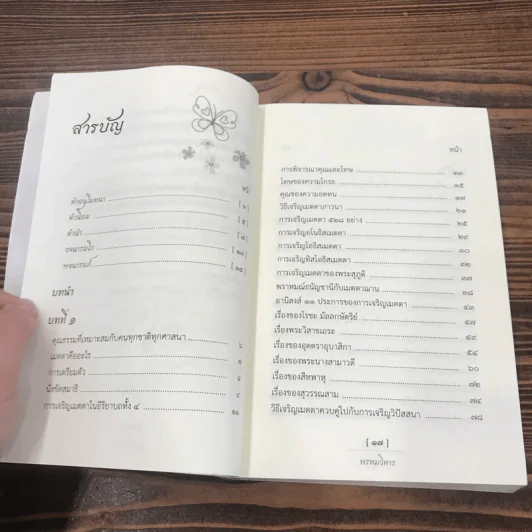 สารบัญ
คำอนุโมทนา
คำนิยม
คำนำ
บทนำ
บทที่ ๑
คุณธรรมที่เหมาะสมกับคนทุกชาติทุกศาสนา
เมตตาคืออะไร
การเตรียมตัว
นั่งขัดสมาธิ
การเจริญเมตตาในอิริยาบถทั้ง ๔
หน้า
การพิจารณาคุณและโทษ ๑๓
โทษของความโกรธ ๑๕
คุณของความอดทน
วิธีเจริญเมตตาภาวนา ๒๑
การเจริญเมตตา ๕๒๘ อย่าง ๒๕
การเจริญอโนธิสเมตตา ๒๙
การเจริญโอธิสเมตตา ๓๐
การเจริญทิสโอธิสเมตตา ๓๒
การเจริญเมตตาของพระสุภูติ ๓๗
พราหมณ์ธนัญชานีกับเมตตาฌาน ๓๘
อานิสงส์ ๑๑ ประการของการเจริญเมตตา ๔๓
เรื่องของโรชะ มัลลกษัตริย์ ๔๗
เรื่องพระวิสาขเถระ ๔๙
เรื่องของอุตตราอุบาสิกา ๕๔
เรื่องของพระนางสามาวดี ๖๐
เรื่องของสีหพาหุ ๗๒
เรื่องของสุวรรณสาม ๗๔
วิธีเจริญเมตตาควบคู่ไปกับการเจริญวิปัสสนา ๗๘
[ ๑๗ ]
พรหมวิหาร